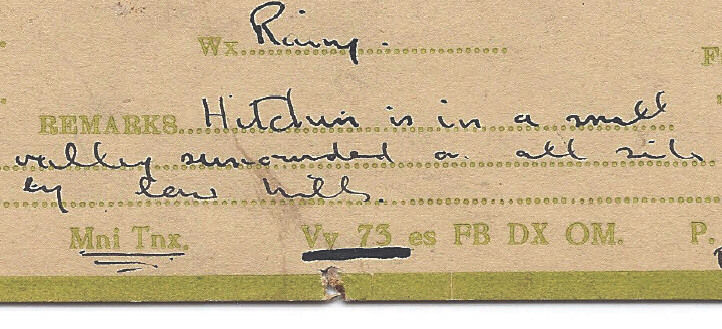 Wx. Rainy.
REMARKS. Hitchin is in a small
valley surrounded on all sides
by low hills.
Mni Tnx. Vy 73 es FB DX OM. P.